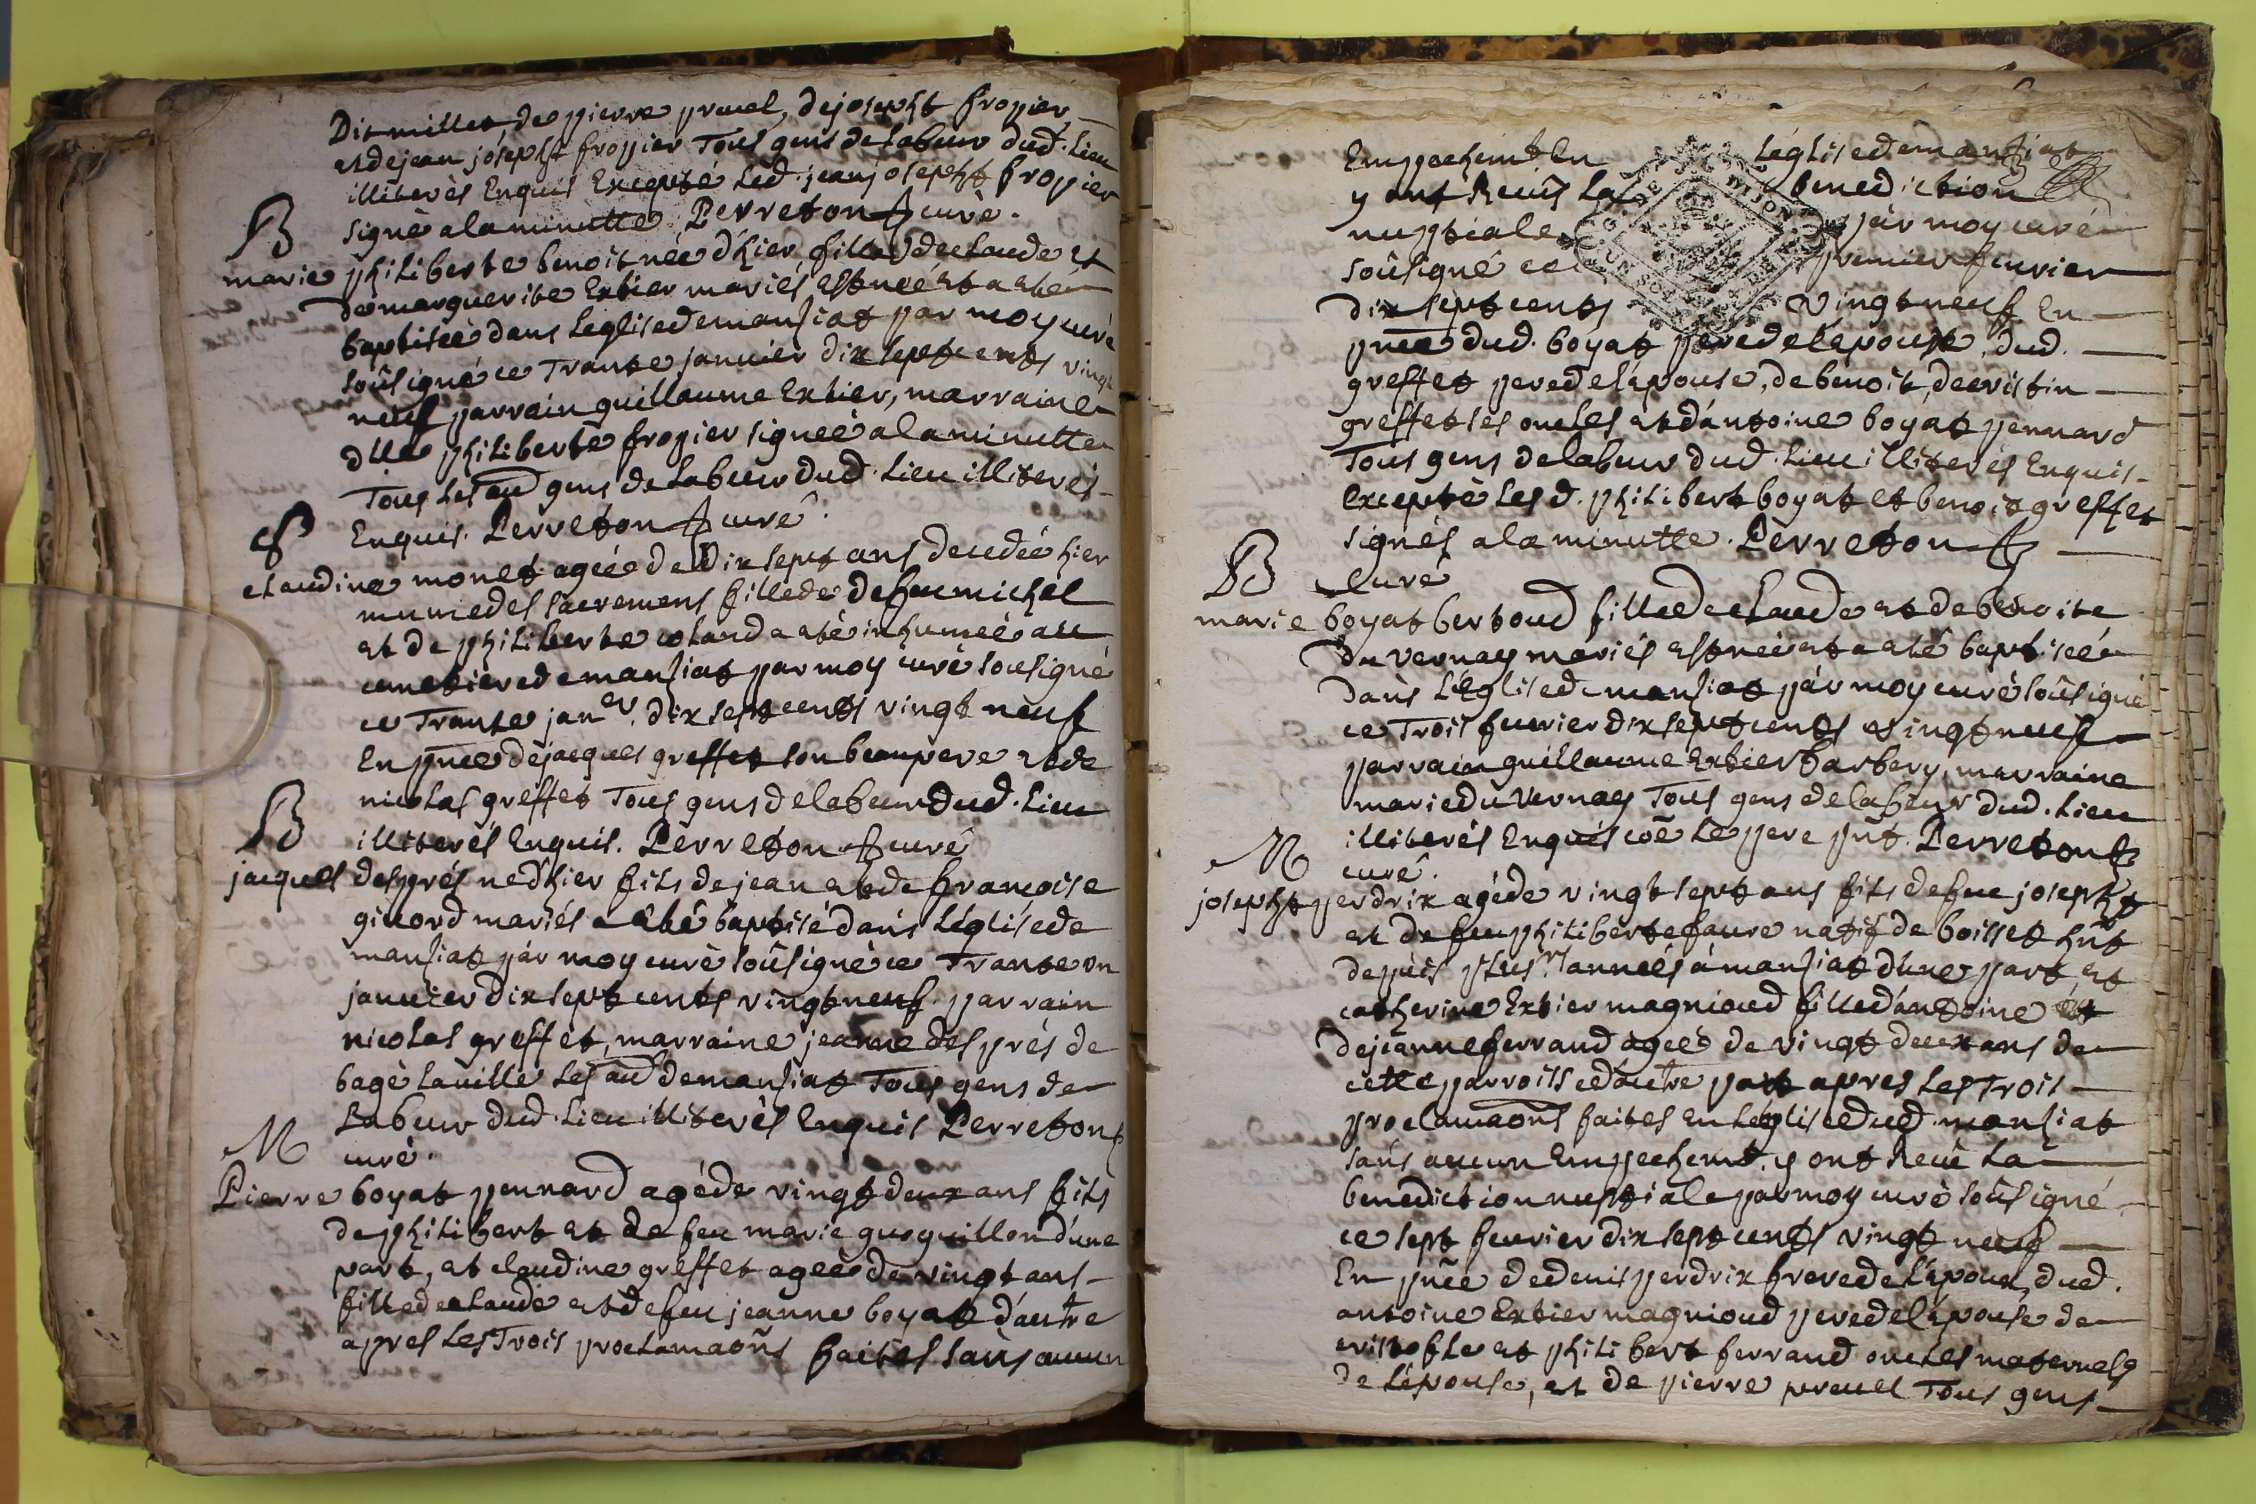 Dit millet, de pierre pruel, de josepht fropier
et de jean josepht fropier Tous gens de labeur dud. Lieu
illiterés Enquis Excepté led. jean josepht fropier
signé a la minutte Perreton curé.
B
marie philiberte benoit née d'hier, fille de claude et
de marguerite Extier mariés est née et a esté
baptisée dans l'eglise de mansiat par moy curé
soûsigné ce Trante janvier dix sept cents vingt
neuf parrain guillaume Extier, marraine
dlle philiberte fropier signée a la minutte
Tous les aud gens de Labeur dud. Lieu illiterés
Enquis. Perreton curé.
claudine monet agée de Dix sept ans decedée hier
munie des sacremens fille de defeu michel
et de philiberte coland a eté inhumée au
cimetiere de mansiat par moy curé sousigné
ce Trante janer. dix sept cents vingt neuf
En pnce de jacques greffet son beaupere et de
nicolas greffet Tous gens de labeur dud. Lieu
illiterés Enquis. Perreton curé
B
jacques després né d'hier fils de jean et de francoise
givord mariés a eté baptisé dans L'église de
mansiat par moy curé soûsigné ce Trante un
janvier dix sept cents vingt neuf. parrain
nicolas greffet, marraine jeanne desprès de
bagé la ville les aud de mansiat Tous gens de
Labeur dud. Lieu illiterés Enquis Perreton
curé.
M
Pierre boyat pennard agé de vingt deux ans fils
de philibert et de feu marie guyguillon d'une
part, et claudine greffet ageé de vingt ans
fille de claude et de feu jeanne boyat d'autre
apres les Trois proclamaõns faites sans aucun
Empechemt En L'église de mansiat
y ont Receüs La benediction
nuptiale par moy curé
soûsigné ce premier fevrier
dix sept cents vingt neuf En
pnce dud. boyat pere de l'epoux, dud.
greffet pere de l'épouse, de benoit, de cristin
greffet ses oncles et d'antoine boyat pennard
Tous gens de labeur dud. Lieu illiterés Enquis
Excepté les d. philibert boyat et benoit greffet
signés a la minutte. Perreton
curé
B
marie boyat bertoud fille de claude et de benoite
du vernay mariés est née et a eté baptisée
dans L'Eglise de mansiat par moy curé soûsigné
ce Trois fevrier dix sept cents vingt neuf
parrain guillaume Extier Barbery, marraine
marie du vernay Tous gens de labeur dud. Lieu
illiterés Enquis coe Le pere pnt. Perreton
curé.
M
josepht perdrix agé de vingt sept ans fils de feu josepht
et de feu philiberte faure natif de boisset hnt
depuis plusrs années à mansiat d'une part, et
catherine Extier magnioud fille d'antoine et
de jeanne ferrand agée de vingt deux ans de
cette parroisse d'autre part apres Les Trois
proclamaõns faites en L'eglise dud. mansiat
sans aucun Empechemt. y ont Receu La
benediction nuptiale par moy curé soûsigné
ce sept fevrier dix sept cents vingt neuf
En pnce de denis perdrix frere de l'epoux, dud.
antoine Extier magnioud pere de l'épouse de
cristofle et philibert ferrand oncles maternels
de L'épouse, et de pierre pruel Tous gens